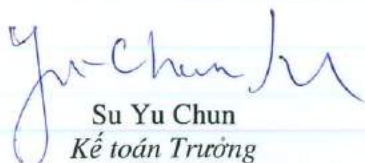 Yu-Chun Su
Su Yu Chun
Kế toán Trưởng